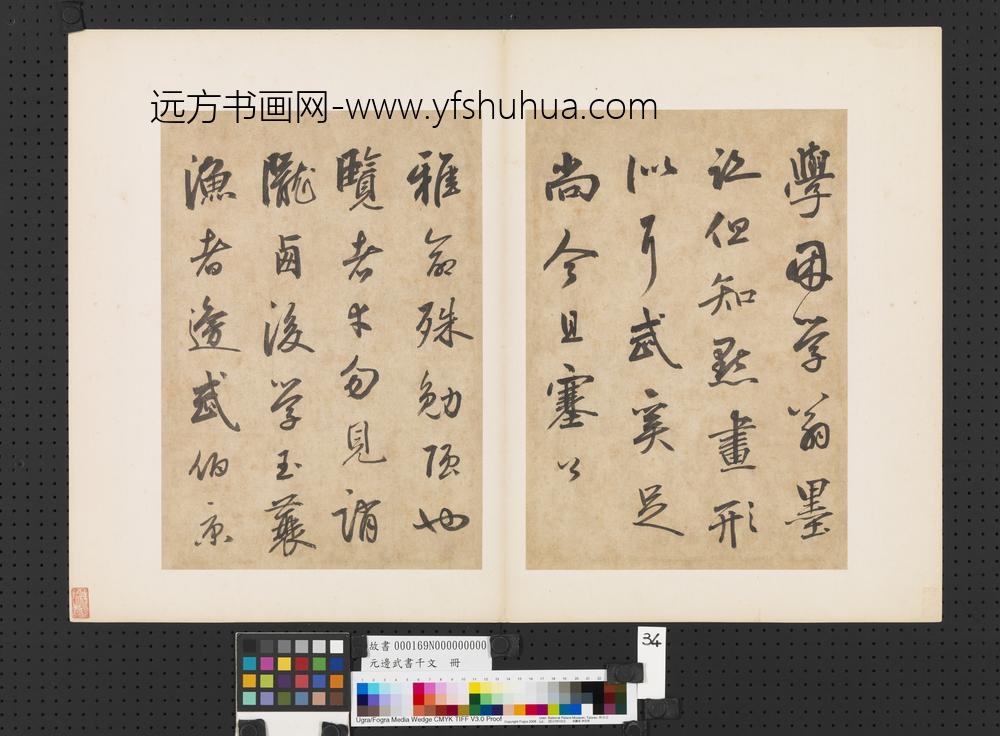 远方书画网-www.yfshuhua.com
學困学翁墨
但知點畫形
似耳武奚足
尚今且塞以
雅命殊勉強也
覽者幸勿見誚
隴鹵後学玉蓑
漁者邊武伯京
34
故書 000169N000000000
元邊武書千文 冊
Ugra/Fogra Media Wedge CMYK TIFF V3.0 Proof